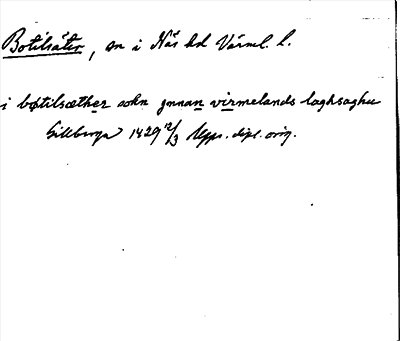 Botilsäter, sn i Näs hd Värml. l.
i bøtilsæther sokn jnnan virmelands laghsaghu
Gillberga 1429 12/3 Upps. dipl. orig.